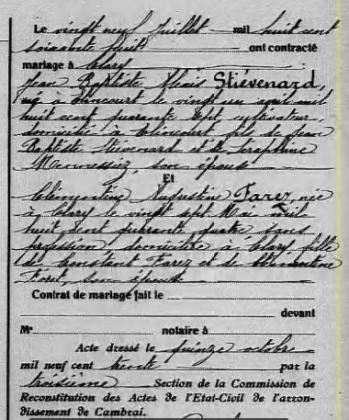 Le vingt neuf Juillet mil huit cent
soixante huit ont contracté
mariage à Clary
Jean Baptiste Alexis Stiévenard,
né à Elincourt le vingt un avril mil
huit cent quarante sept cultivateur
domicilié à Elincourt fils de Jean
Baptiste Stiévenard et de Séraphine
son épouse
Et
Clémentine Augustine Farez, née
à Clary le vingt sept Mai mil
huit cent quarante quatre sans
profession domiciliée à Clary fille
de Constant Farez et de Clémentine
son épouse
Contrat de mariage fait le
devant
Me notaire à
Acte dressé le quinze octobre
mil neuf cent trente par la
troisième Section de la Commission de
Reconstitution des Actes de l'Etat-Civil de l'arron-
dissement de Cambrai.